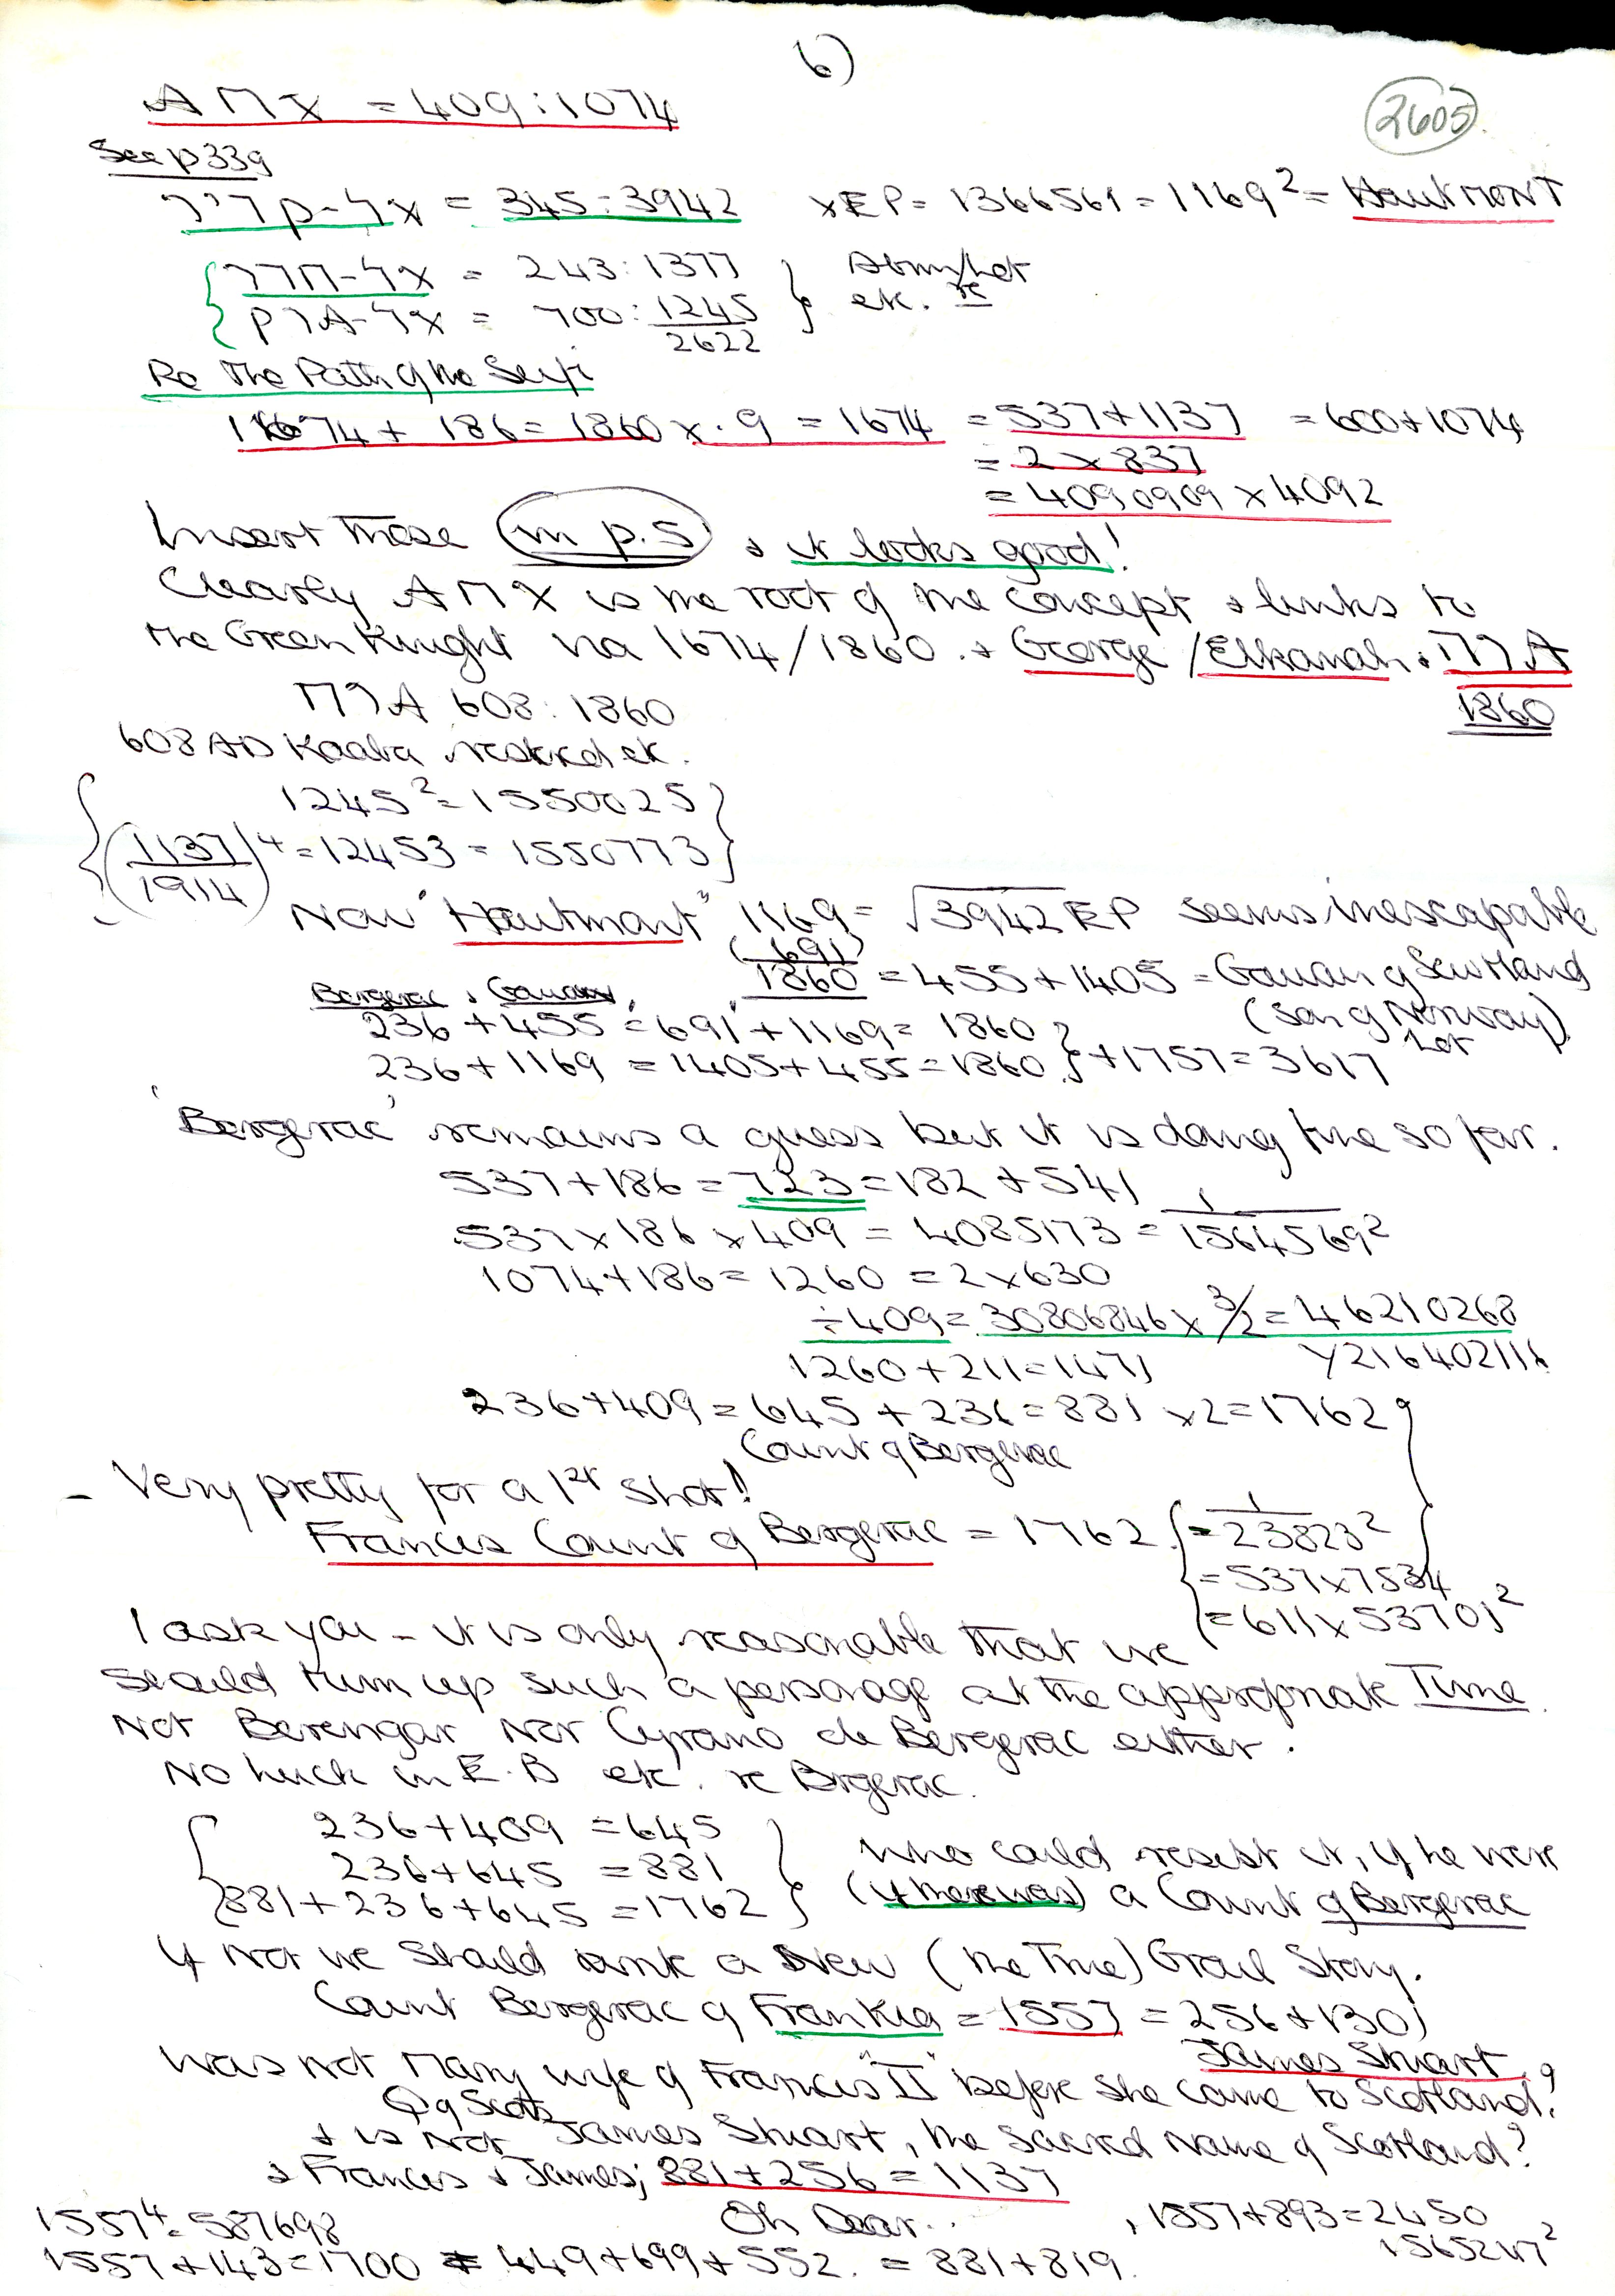 6)
2605
= 409 : 1074
See p 339
= 345 : 3942 x EP = 1366561 = 1169² = Hautmont
= 243 : 1377
= 700 : 1245
etc. re
2622
Re The Path of the
1674 + 186 = 1860 x .9 = 1674 = 537 + 1137 = 600 + 1074
= 2 x 837
= 4090909 x 4092
Insert these in p.5 & it looks good!
Clearly is the root of the concept & links to
the Green Knight via 1674/1860. & George / Elkanah &
1860
608 : 1860
608 AD Kaaba etc.
1245² = 1550025
(1137/1914)⁴ = 12453 = 1550773
Now "Hautmont" 1169 = √3942 EP seems inescapable
(691)
1860 = 455 + 1405 = Gawan of
(son of Norway)
Lot
Bergerac & Gawan
236 + 455 = 691 + 1169 = 1860
236 + 1169 = 1405 + 455 = 1860 } + 1757 = 3617
'Bergerac' remains a guess but it is doing fine so far.
537 + 186 = 723 = 182 + 541
537 x 186 x 409 = 4085173 = 1/1564569²
1074 + 186 = 1260 = 2 x 630
÷ 409 = 30806846 x 3/2 = 46210268
1260 + 211 = 1471
236 + 409 = 645 + 236 = 881 x 2 = 1762
Count of Bergerac
- Very pretty for a 1st shot!
Frances Count of Bergerac = 1762 { = 1/23823²
= 537 x 7534
= 611 x 53701²
I ask you - it is only reasonable that we
should turn up such a personage at the appropriate Time
Not Berengar nor Cyrano de Bergerac either.
No luck in E.B etc. re Brgerac.
236 + 409 = 645
236 + 645 = 881
881 + 236 + 645 = 1762
Who could resist it, if he were
(if there was) a Count of Bergerac
If not we should write a New (the True) Grail Story.
Count Bergerac of Frankia = 1557 = 256 + 1301
James Stuart
Was not Mary wife of Francis "II" before she came to Scotland?
Q of Scots
& is not James Stuart, the sacred name of Scotland?
& Frances & James; 881 + 256 = 1137
Oh Dear..
1557⁴ = 587698
1557 + 893 = 2450
1557 + 143 = 1700 = 449 + 699 + 552. = 881 + 819.